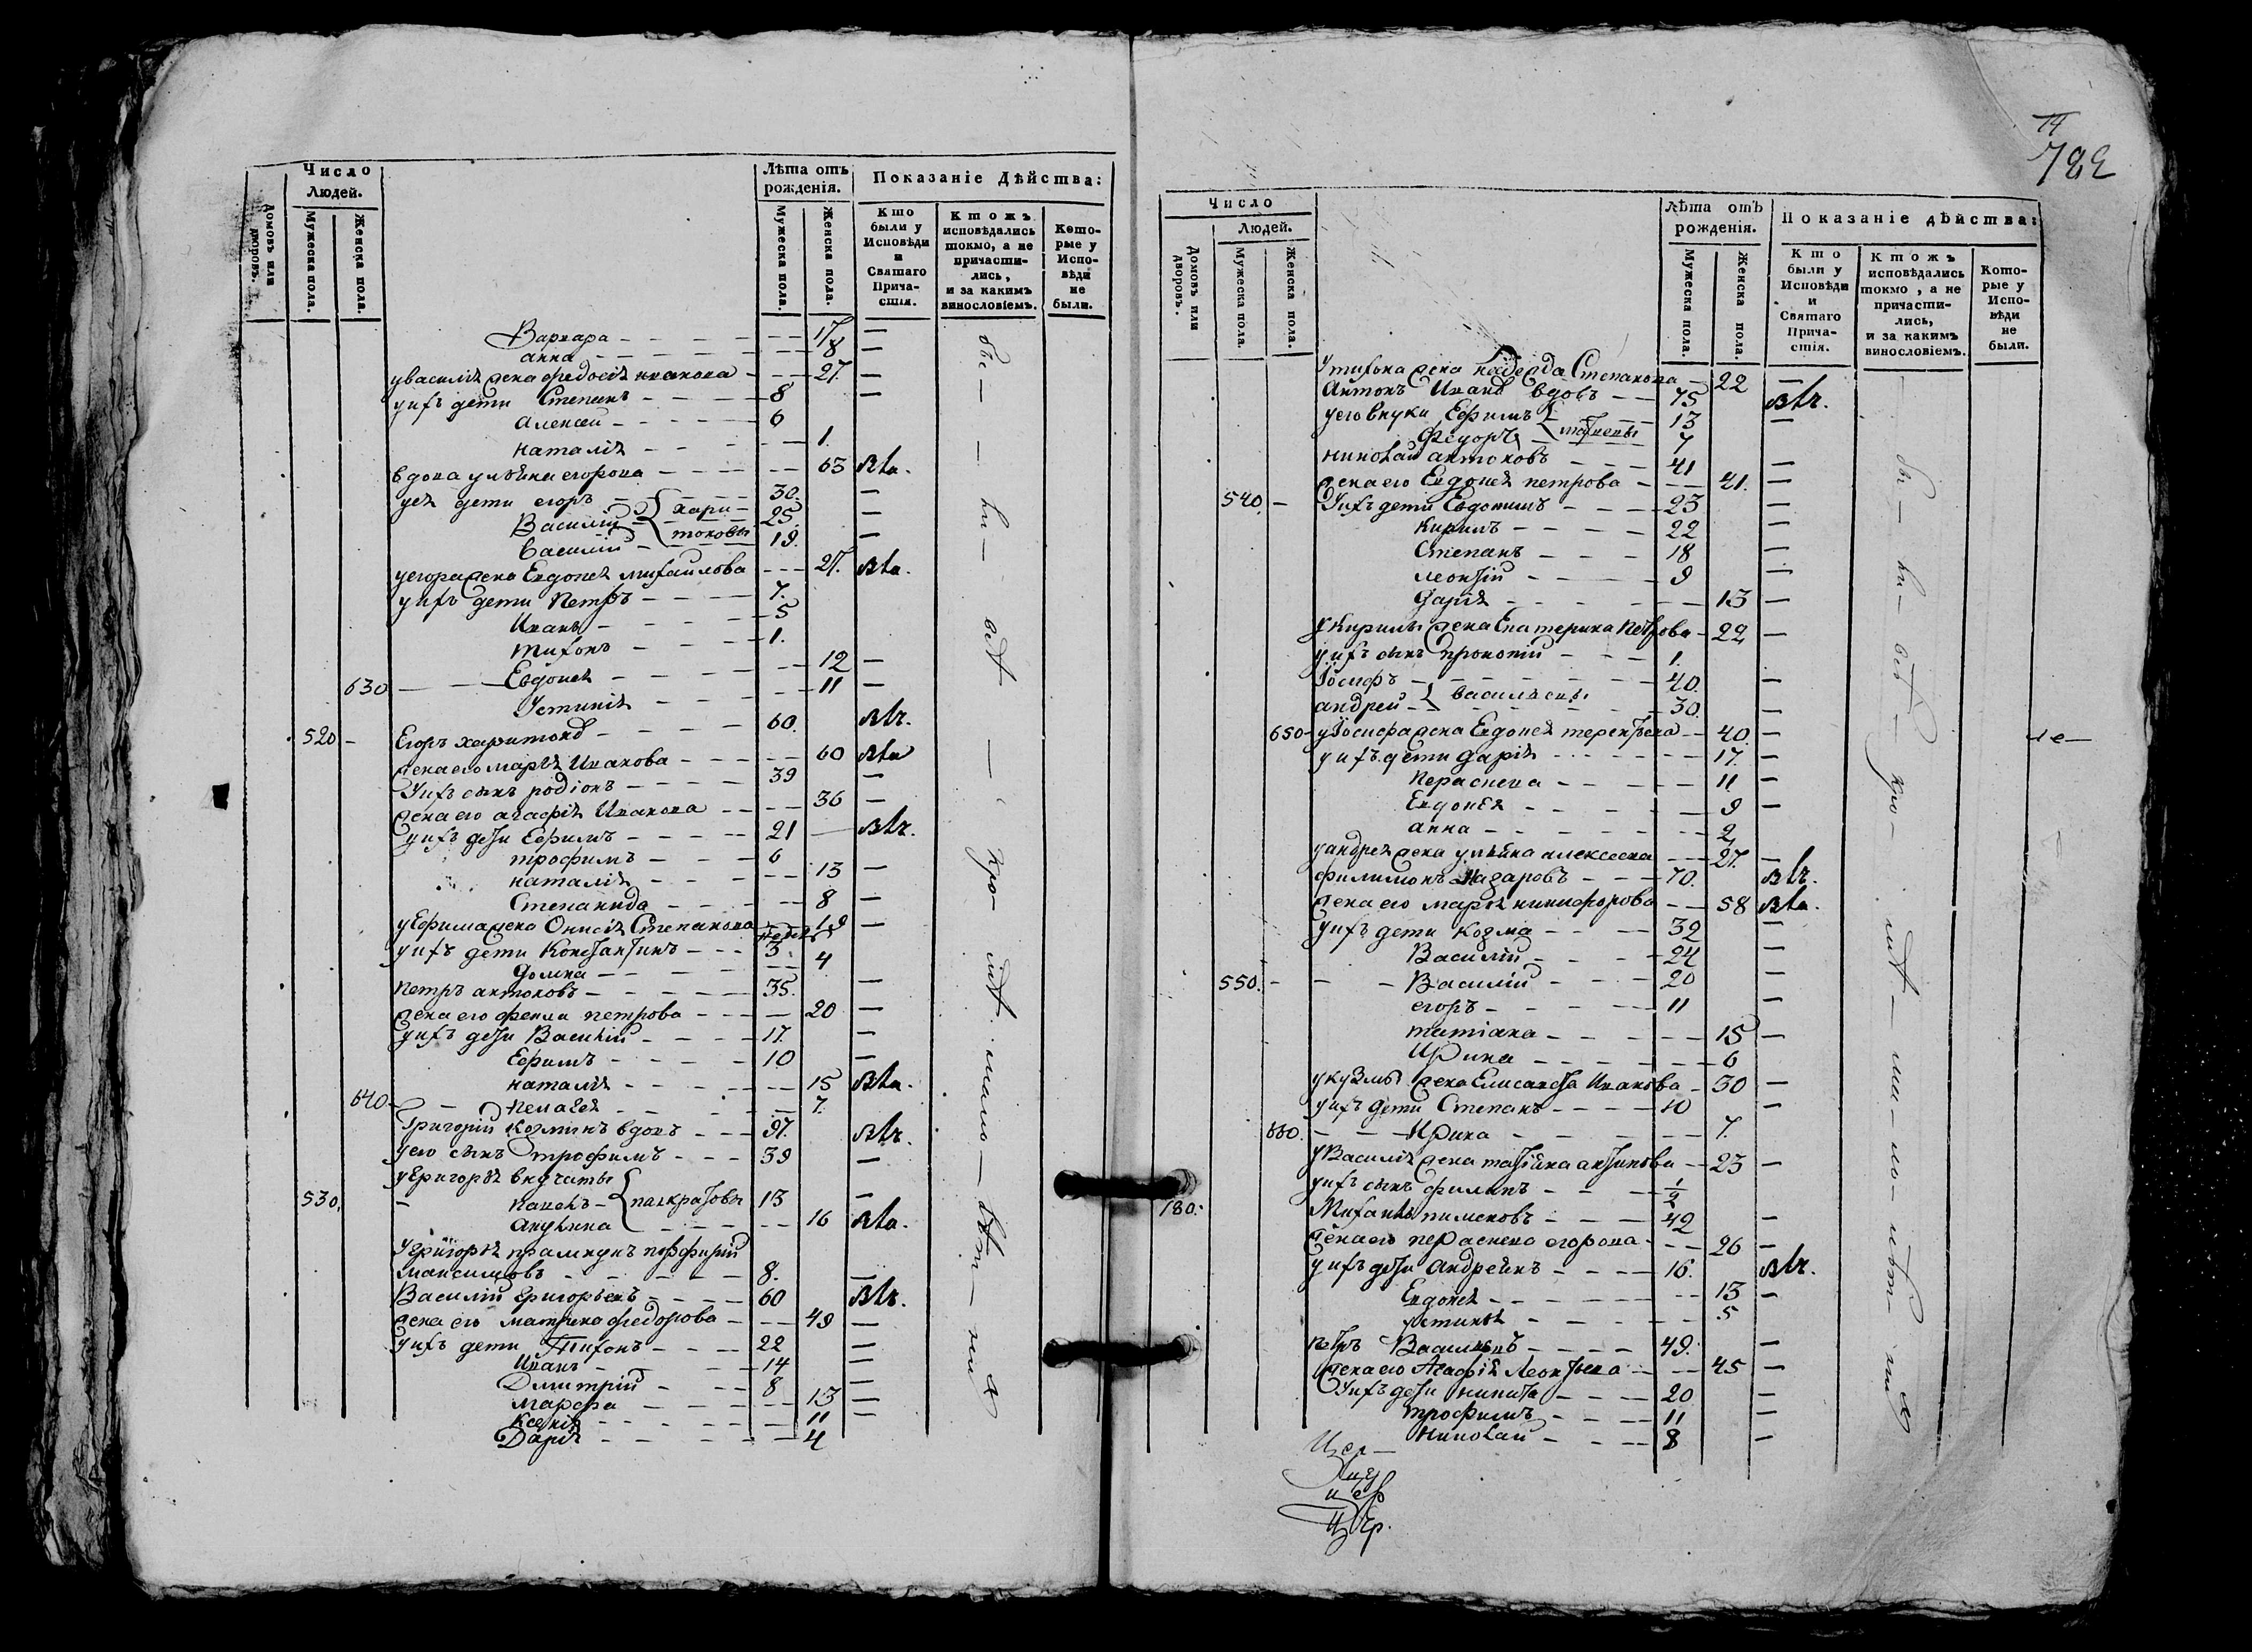 Число
Людей.
Домовъ или дворовъ.
Мужеска пола.
Женска пола.
Лѣта отъ рожденія.
Мужеска пола.
Женска пола.
Показаніе Дѣйства:
Кто были у Исповѣди и Святаго Прича-стія.
Ктожъ исповѣдались токмо, а не причасти-лись, и за какимъ винословіемъ.
Кото-рые у Испо-вѣди не были.
Варвара 17
анна 8
у василія жена федосія иванова 27.
у ихъ дети Степанъ 8
алексей 6
наталія 1.
вдова улияна егорова 63
у ея дети егоръ 30.
Василій харитоновы 25.
василій 19.
у егора жена Евдокея михайлова 27.
у ихъ дети Петръ 7.
Иванъ 5
тихонъ 1.
Евдокея 12
630 Устинія 11
520 Егоръ харитоновъ 60.
жена его марѳа Иванова 60
У ихъ сынъ родіонъ 39
жена его агафія Иванова 36
у ихъ дети Ефимъ 21
трофимъ 6
наталія 13
Степанида 8
у Ефима жена Онисія Степанова 19
у ихъ дети Константинъ 3.
домна 4
Петръ антоновъ 35.
жена его фекла петрова 20
у ихъ дети Василій 17.
Ефимъ 10
наталія 15
640 Пелагея 7.
Григорій Козминъ вдовъ 97.
у его сынъ трофимъ 39
у Григорія внучаты
530. Павелъ панкратовы 13
Акулина 16
У Григорія правнукъ порфирій
максимовъ 8.
Василій Григорьевъ 60
жена его матрена федорова 49
У ихъ дети Тихонъ 22
Иванъ 14
Дмитрій 8
марфа 13
Ксенія 11
Дарія 4
782
Число
Людей.
Домовъ или дворовъ.
Мужеска пола.
Женска пола.
Лѣта отъ рожденія.
Мужеска пола.
Женска пола.
Показаніе дѣйства:
Кто были у Исповѣди и Святаго Прича-стія.
Ктожъ исповѣдались токмо, а не причасти-лись, и за какимъ винословіемъ.
Кото-рые у Испо-вѣди не были.
У тихона жена Надежда Степанова 22
Антонъ Ивановъ вдовъ 75
у его внуки Ефимъ 13
Федоръ 7
николай антоновъ 41
жена его Евдокея петрова 41.
540. У ихъ дети Евдокимъ 23
Кирилъ 22
Степанъ 18
леонтій 9
дарія 13
у Кирилы жена Екатерина Петрова 22
у ихъ сынъ прокопій 1.
Іосифъ васильевы 40.
андрей 30.
650 у Іосифа жена Евдокея терентьева 40.
у ихъ дети дарія 17.
Параскева 11
Евдокея 9
анна 2
у андрея жена улияна алексеева 27.
филимонъ Назаровъ 70.
жена его марѳа никифорова 58
у ихъ дети Козма 32
Василій 24
550. Василій 20
егоръ 11
татіана 15
Ирина 6
у кузмы жена Елисавета Иванова 30
у ихъ дети Степанъ 10
660. Ирина 7.
У Василія жена татіяна антипова 23
у ихъ сынъ филипъ 1/2
180. Михаилъ пименовъ 42
жена его параскева егорова 26
у ихъ дети Андреянъ 16.
Евдокея 13
устинія 5
Петръ Васильевъ 49.
жена его Агафія Леонтьева 45
У ихъ дети никита 20
трофимъ 11
николай 8